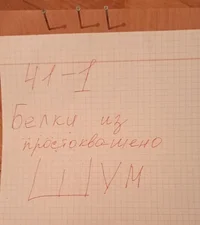 41-1
Белки из
простоквашено
ШУМ